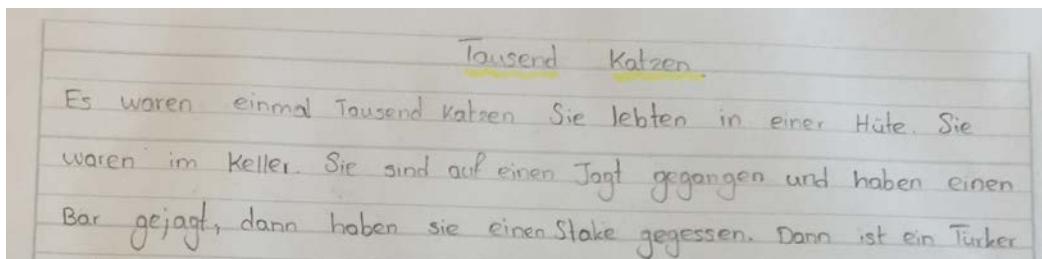 Tausend Katzen.
Es waren einmal Tausend Katzen Sie lebten in einer Hüte. Sie
waren im Keller. Sie sind auf einen Jagt gegangen und haben einen
Bär gejagt, dann haben sie einen Stake gegessen. Dann ist ein Türker